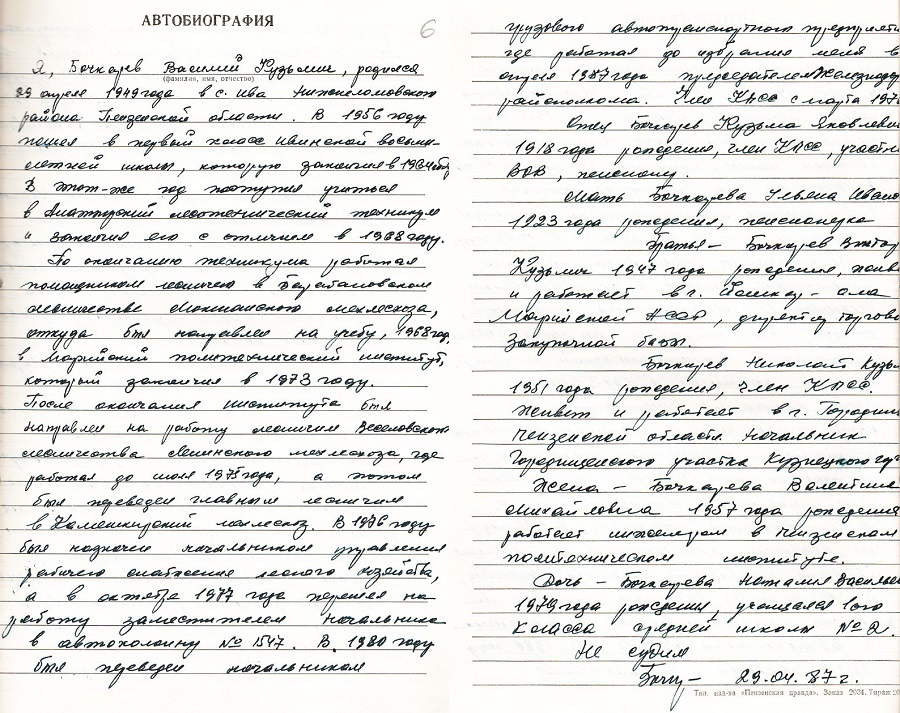 АВТОБИОГРАФИЯ
6
Я, Бочкарев Василий Кузьмич, родился
(фамилия, имя, отчество)
29 апреля 1949 года в с. Ива Нижнеломовского
района Пензенской области. В 1956 году
пошел в первый класс Ивинской восьми-
летней школы, которую закончил в 1964 году
В этот-же год поступил учиться
в Алатырский лесотехнический техникум
и закончил его с отличием в 1968 году.
По окончанию техникума работал
помощником лесничего в
лесничестве Мокшанского мехлесхоза,
откуда был направлен на учебу, 1968 год
в Марийский политехнический институт,
который закончил в 1973 году.
После окончания института был
направлен на работу лесничим Веселовского
лесничества Ленинского мехлесхоза, где
работал до июля 1975 года, а потом
был переведен главным лесничим
в Камешкирский лехлесхоз. В 1976 году
был назначен начальником управления
рабочего снабжения лесного хозяйства,
а в октябре 1977 года перешел на
работу заместителем начальника
в автоколонну № 1547. В 1980 году
был переведен начальником
грузового автотранспортного предприяти
где работал до избрания меня в
апреля 1987 года председателем Железнодор
райисполкома. Член КПСС с марта 197
Отец Бочкарев Кузьма Яковлеви
1918 года рождения, член КПСС, участн
ВОВ, пенсионер.
Мать Бочкарева Ульяна Ивано
1923 года рождения, пенсионерка
Братья – Бочкарев Виктор
Кузьмич 1947 года рождения, живе
и работает в г. Йошкар-ола
Марийской АССР, директор торгово
Закупочной базы.
Бочкарев Николай Кузь
1951 года рождения, член КПСС.
Живет и работает в г. Городищ
Пензенской области. Начальник
Городищенского участка Кузнецкого гор
Жена – Бочкарева Валентина
Михайловна 1957 года рождения
работает инженером в Пензенском
политехническом институте.
Дочь – Бочкарева Наталия Василье
1979 года рождения, учащаяся 1ого
класса средней школы № 2.
Не судим
29.04.87 г.
Тип. изд-ва «Пензенская правда». Заказ 2034. Тираж 20